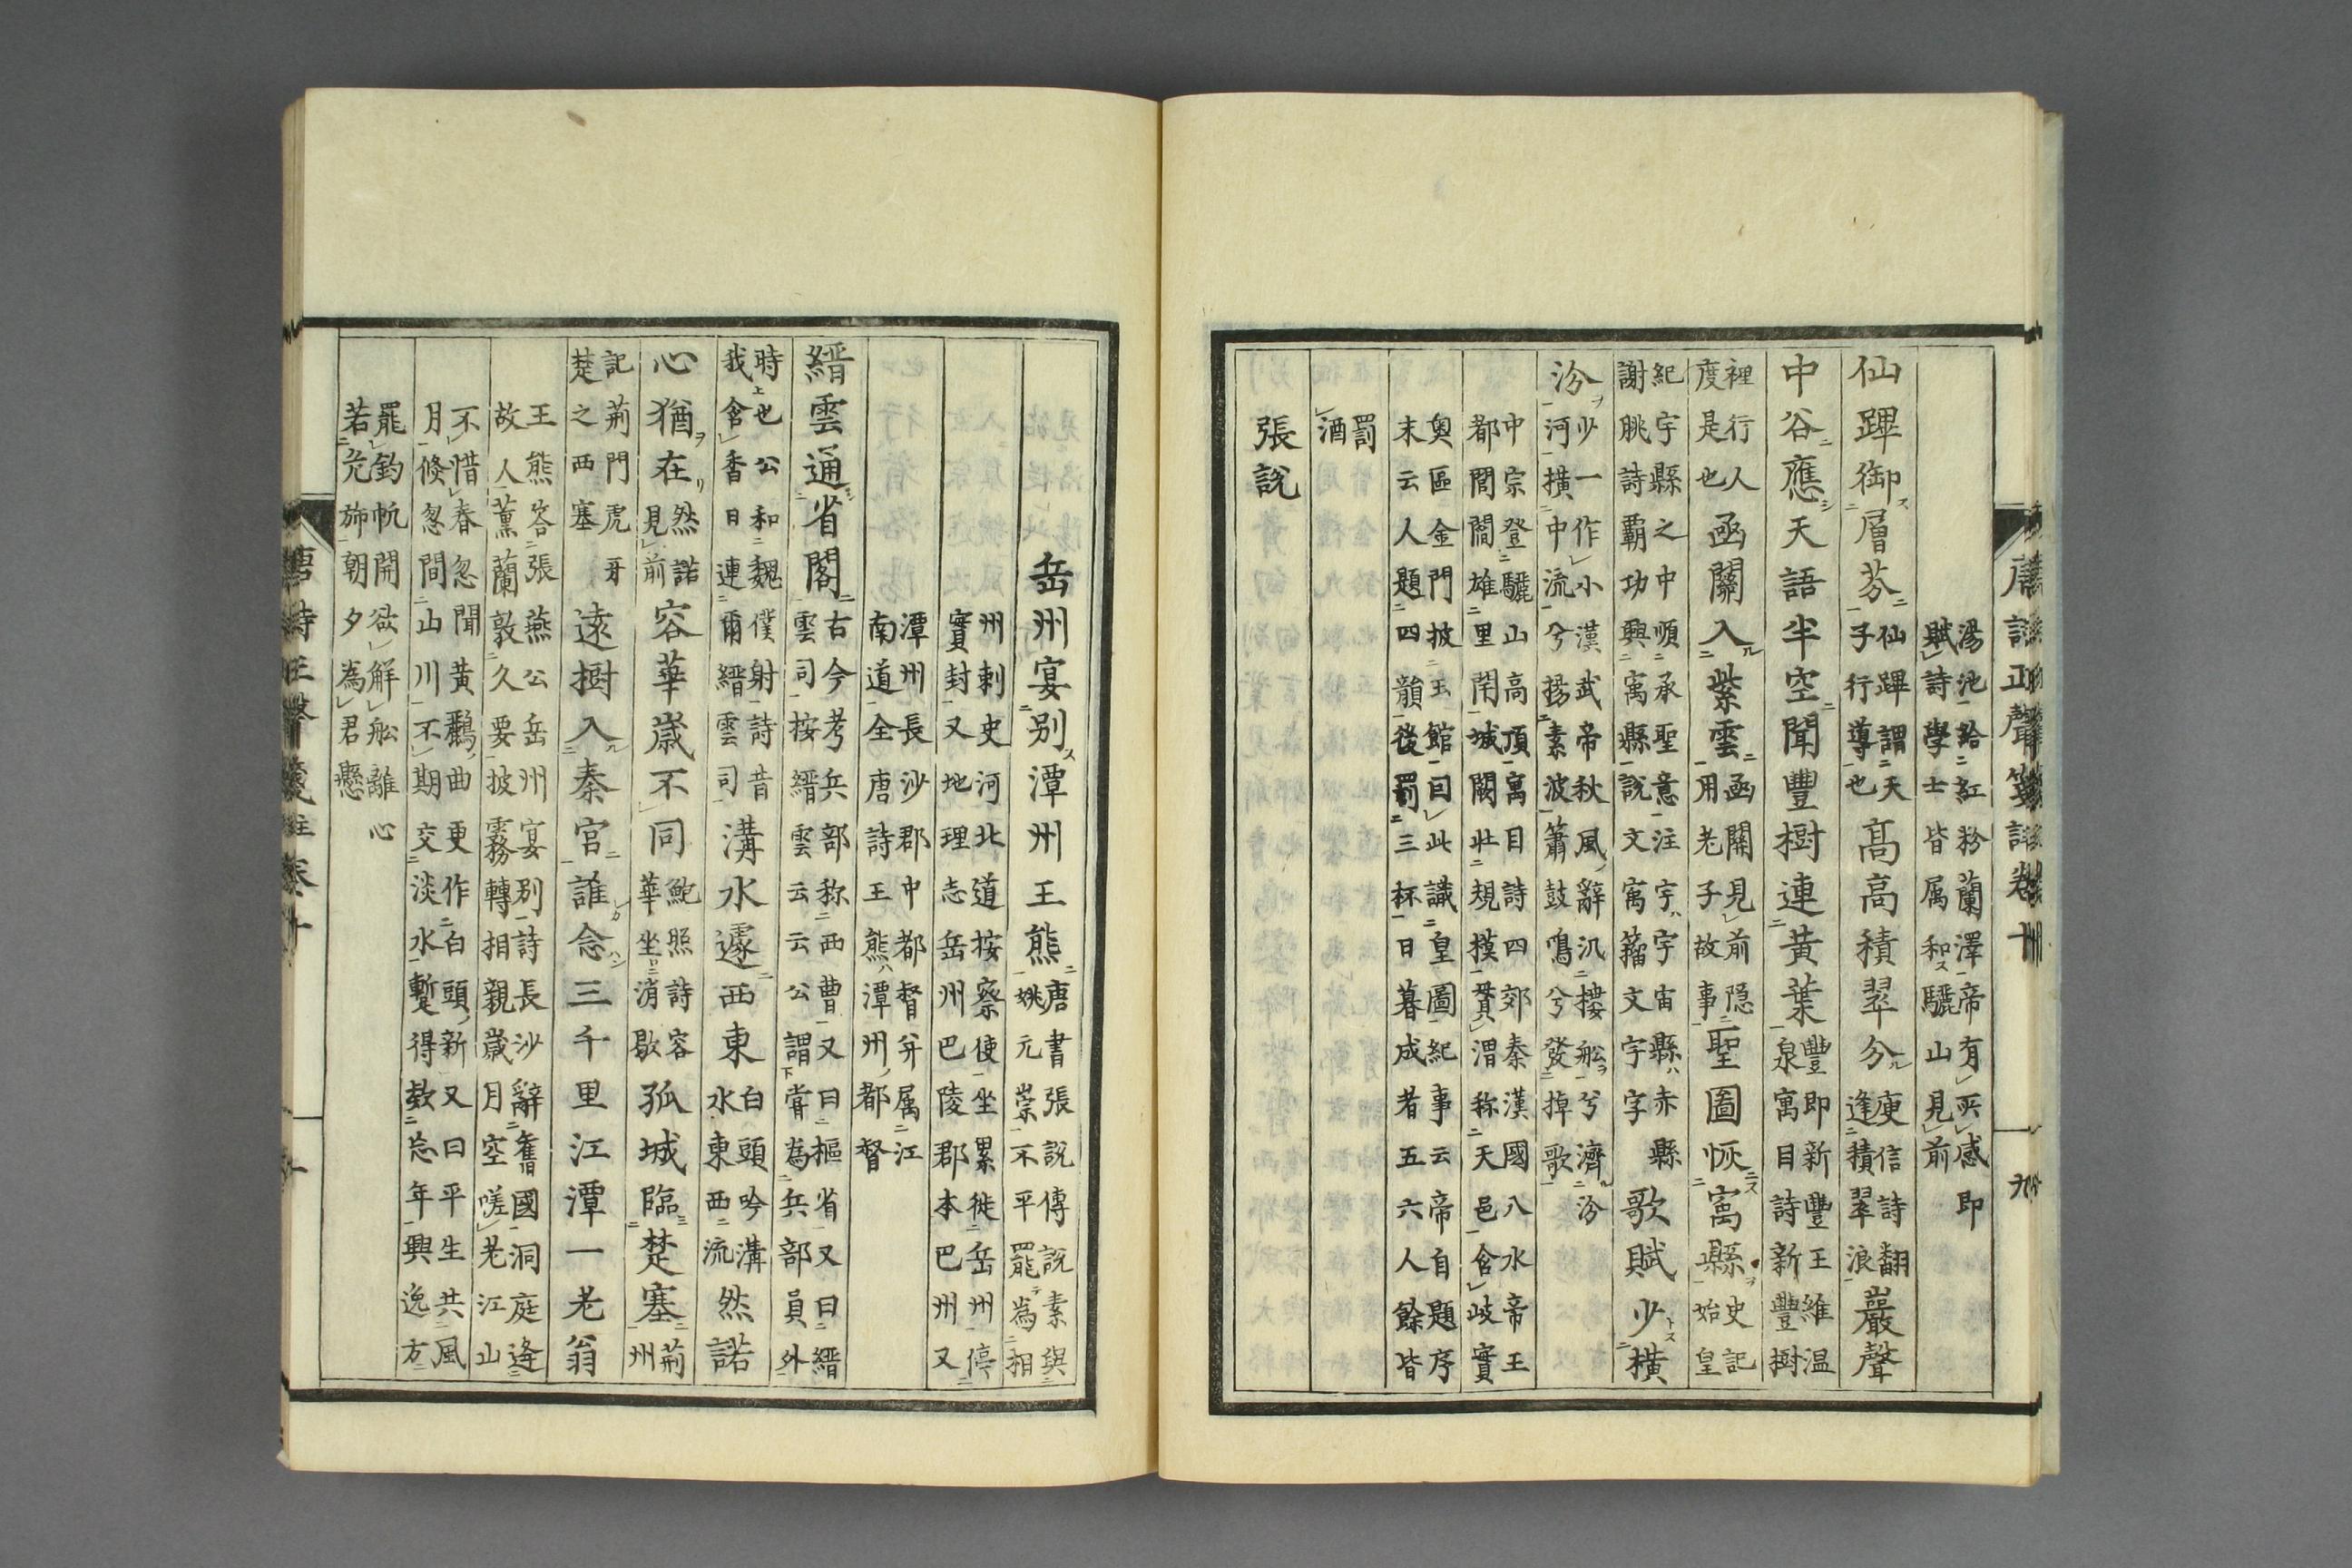 唐詩正聲箋註卷十
九
湯池給紅粉蘭澤帝有所感即
賦詩學士皆属和驪山見前
仙蹕御層芬仙蹕謂天子行導也高高積翠分庾信詩翻逢積翠浪嚴聲
中谷應天語半空聞豐樹連黃葉豐即新豐王維温泉寓目詩新豐樹
裡行人度是也函關入紫雲函關見前隠用老子故事聖圖恢寓縣史記始皇
紀宇縣之中順承聖意注宇ハ宇宙縣ハ赤縣謝朓詩覇功興寓縣說文寓籀文宇字歌賦少橫
汾少一作小漢武帝秋風辭汎樓舩兮濟汾河横中流兮揚素波簫鼓鳴兮發掉歌
中宗登驪山高頂寓目詩四郊秦漢國八水帝王
都閭閻雄里閈城闕壯規模貫渭称天邑含岐實
奧區金門披玉館曰此識皇圖紀事云帝自題序
末云人題四韻後罰三杯日暮成者五六人餘皆
罰
酒
張說
岳州宴别潭州王熊唐書張說傳說素與姚元崇不平罷為相
州刺史河北道按察使坐累徙岳州停
實封又地理志岳州巴陵郡本巴州又
潭州長沙郡中都督府属江
南道全唐詩王熊潭州都督
縉雲通省閣古今考兵部称西曹又曰樞省又曰縉雲司按縉雲云云公謂嘗為兵部員外
時也公和魏僕射詩昔我含香日連爾縉雲司溝水遽西東白頭吟溝水東西流然諾
心猶在然諾見前容華歲不同鮑照詩容華坐消歇孤城臨楚塞荊州
記荊門虎牙楚之西塞遠樹入秦宫誰念三千里江潭一老翁
王熊答張燕公岳州宴别詩長沙辭舊國洞庭逢
故人薰蘭敦久要披霧轉相親歲月空嗟老江山
不惜春忽聞黃鸝曲更作白頭新又曰平生共風
月倐忽間山川不期交淡水暫得款忘年興逸方
罷釣帆開欲解舩離心
若危斾朝夕為君懸